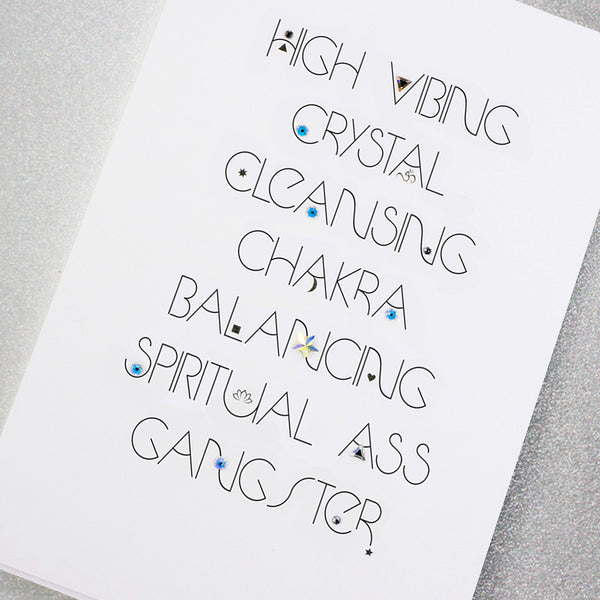 HIGH VIBING
CRYSTAL
CLEANSING
CHAKRA
BALANCING
SPIRITUAL ASS
GANGSTER